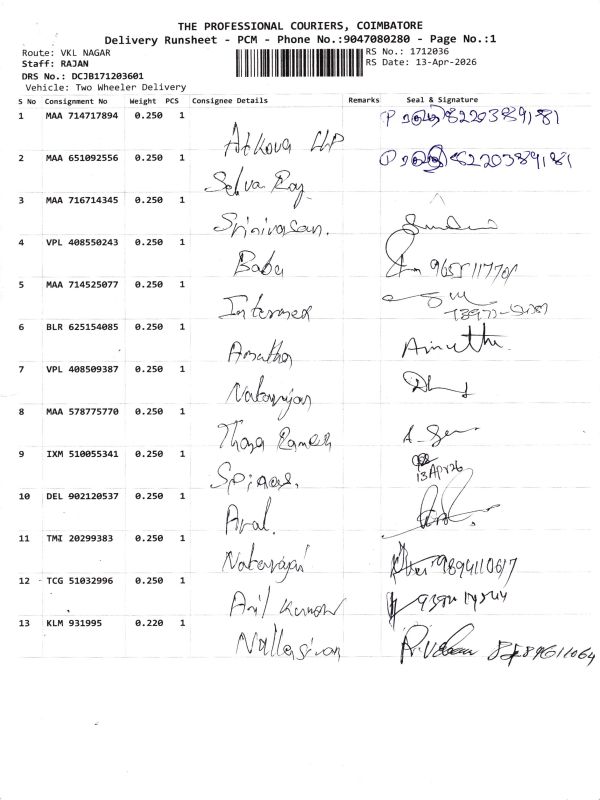 THE PROFESSIONAL COURIERS, COIMBATORE
Delivery Runsheet - PCM - Phone No.:9047080280 - Page No.:1
Route: VKL NAGAR RS No.: 1712036
Staff: RAJAN RS Date: 13-Apr-2026
DRS No.: DCJB171203601
Vehicle: Two Wheeler Delivery
S No Consignment No Weight PCS Consignee Details Remarks Seal & Signature
1 MAA 714717894 0.250 1 Atkova LLP
2 MAA 651092556 0.250 1 Selva Raj
3 MAA 716714345 0.250 1 Srinivasan.
4 VPL 408550243 0.250 1 Baba
5 MAA 714525077 0.250 1 Intermed
6 BLR 625154085 0.250 1 Amutha Amutha
7 VPL 408509387 0.250 1 Natarajan
8 MAA 578775770 0.250 1 Ramesh
9 IXM 510055341 0.250 1 13 Apr 26
10 DEL 902120537 0.250 1
11 TMI 20299383 0.250 1 Natarajan 9894110617
12 TCG 51032996 0.250 1 Anil Kumar
13 KLM 931995 0.220 1 Nallasivan